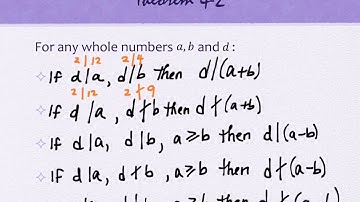 Theorem 4-2
For any whole numbers a, b and d :
2|12 2|4
If d|a, d|b then d|(a+b)
2|12 2∤9
If d|a, d∤b then d∤(a+b)
If d|a, d|b, a≥b then d|(a-b)
If d|a, d∤b, a≥b then d∤(a-b)